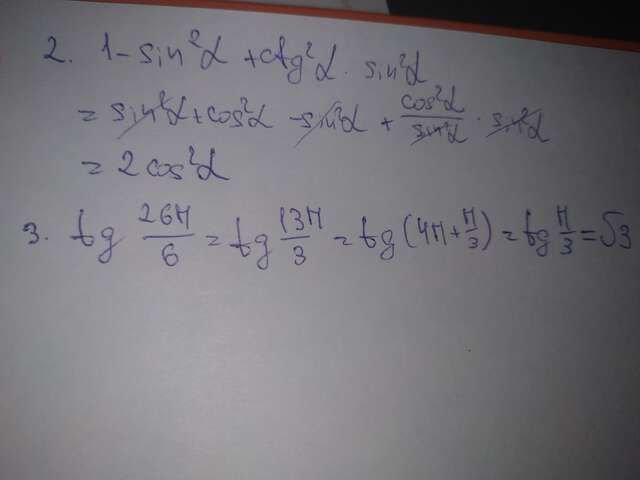 2. 1 - sin²α + ctg²α · sin²α
= sin²α + cos²α - sin²α + cos²α/sin²α · sin²α
= 2 cos²α
3. tg 26π/6 = tg 13π/3 = tg (4π + π/3) = tg π/3 = √3